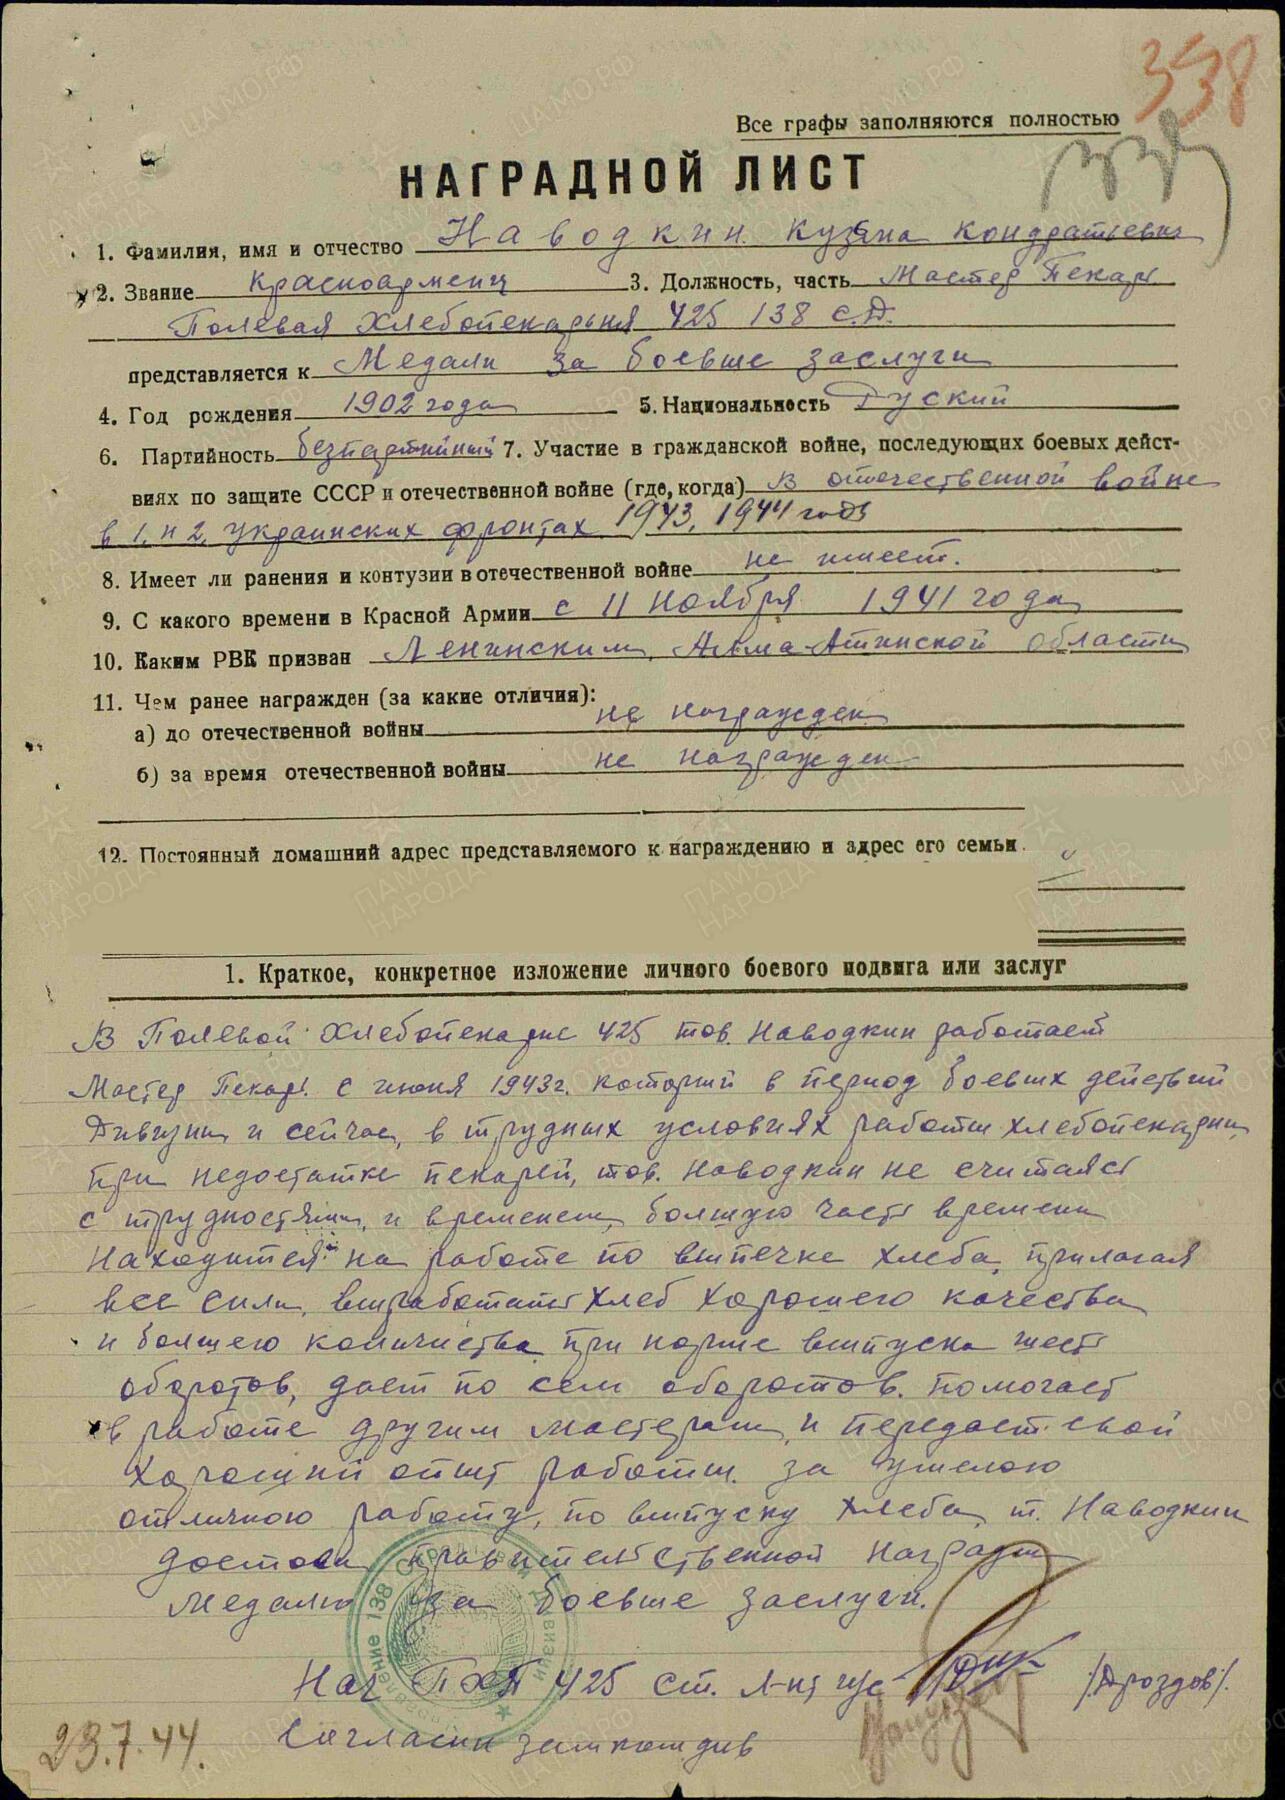 338
Все графы заполняются полностью
НАГРАДНОЙ ЛИСТ
1. Фамилия, имя и отчество Наводкин Кузьма Кондратьевич
2. Звание Красноармеец 3. Должность, часть Мастер Пекарь
Полевая Хлебопекарня 425 138 с.д.
представляется к Медали за боевые заслуги
4. Год рождения 1902 года 5. Национальность Руский
6. Партийность безпартийный 7. Участие в гражданской войне, последующих боевых дейст-
виях по защите СССР и отечественной войне (где, когда) в отечественной войне
в 1. и 2. украинских фронтах 1943, 1944 годы
8. Имеет ли ранения и контузии в отечественной войне не имеет.
9. С какого времени в Красной Армии с 11 ноября 1941 года
10. Каким РВК призван Ленинским, Алма-Атинской области
11. Чем ранее награжден (за какие отличия):
а) до отечественной войны не награжден
б) за время отечественной войны не награжден
12. Постоянный домашний адрес представляемого к награждению и адрес его семьи
1. Краткое, конкретное изложение личного боевого подвига или заслуг
В Полевой Хлебопекарне 425 тов. Наводкин работает
Мастер Пекарь. с июня 1943г. который в период боевых действий
Дивизии и сейчас, в трудных условиях работы хлебопекарни,
при недостатке пекарей, тов. Наводкин не считаяст
с трудностями, и временем, болшую часть времени
находится на работе по выпечке хлеба, прилагая
все силы, выработать хлеб хорошего качества
и болшего количества при норме выпуска шест
оборотов, дает по сем оборотов. помогает
в работе другим мастерам, и передает свой
хороший опыт работы. за умелою
отличною работу, по выпуску хлеба, т. Наводкин
достоин правителственной награды
медалью за боевые заслуги.
Нач ПХП 425 ст. л-нт и/с /Дроздов/.
Согласен
23.7.44.
Управление 138 Стрелковой Дивизии
ПАМЯТЬ НАРОДА
ЦАМО.РФ